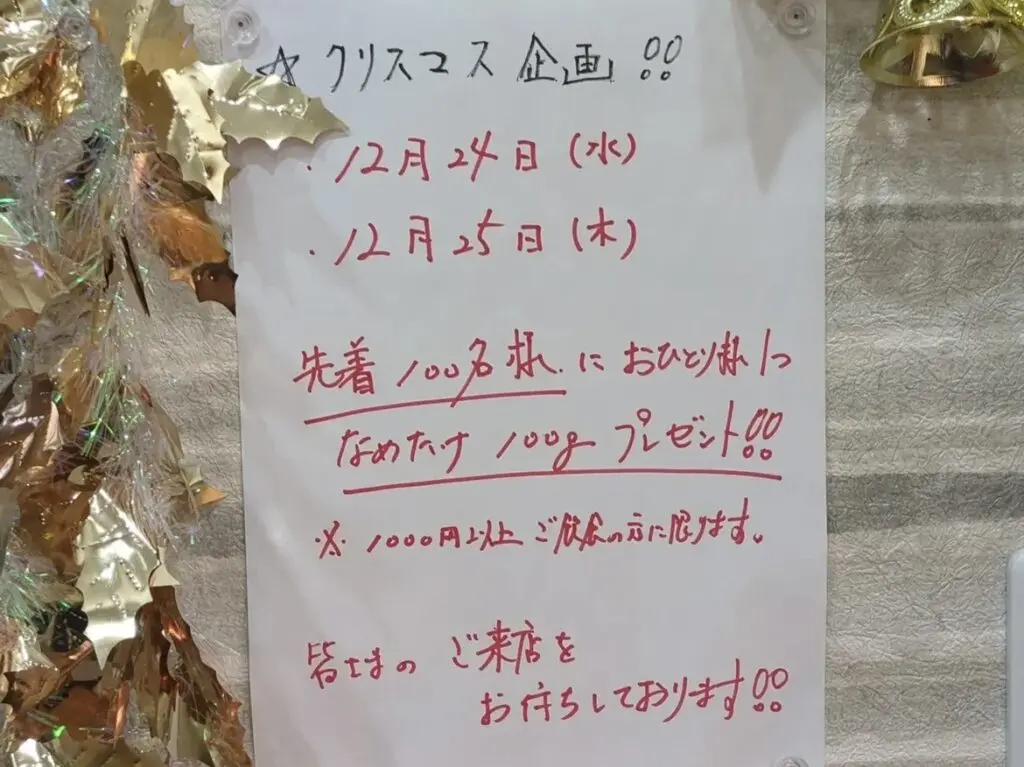 ☆クリスマス企画!!
・12月24日(水)
・12月25日(木)
先着100名様におひとり様1つ
なめたけ100gプレゼント!!
※1000円以上ご飲食の方に限ります。
皆さまのご来店を
お待ちしております!!